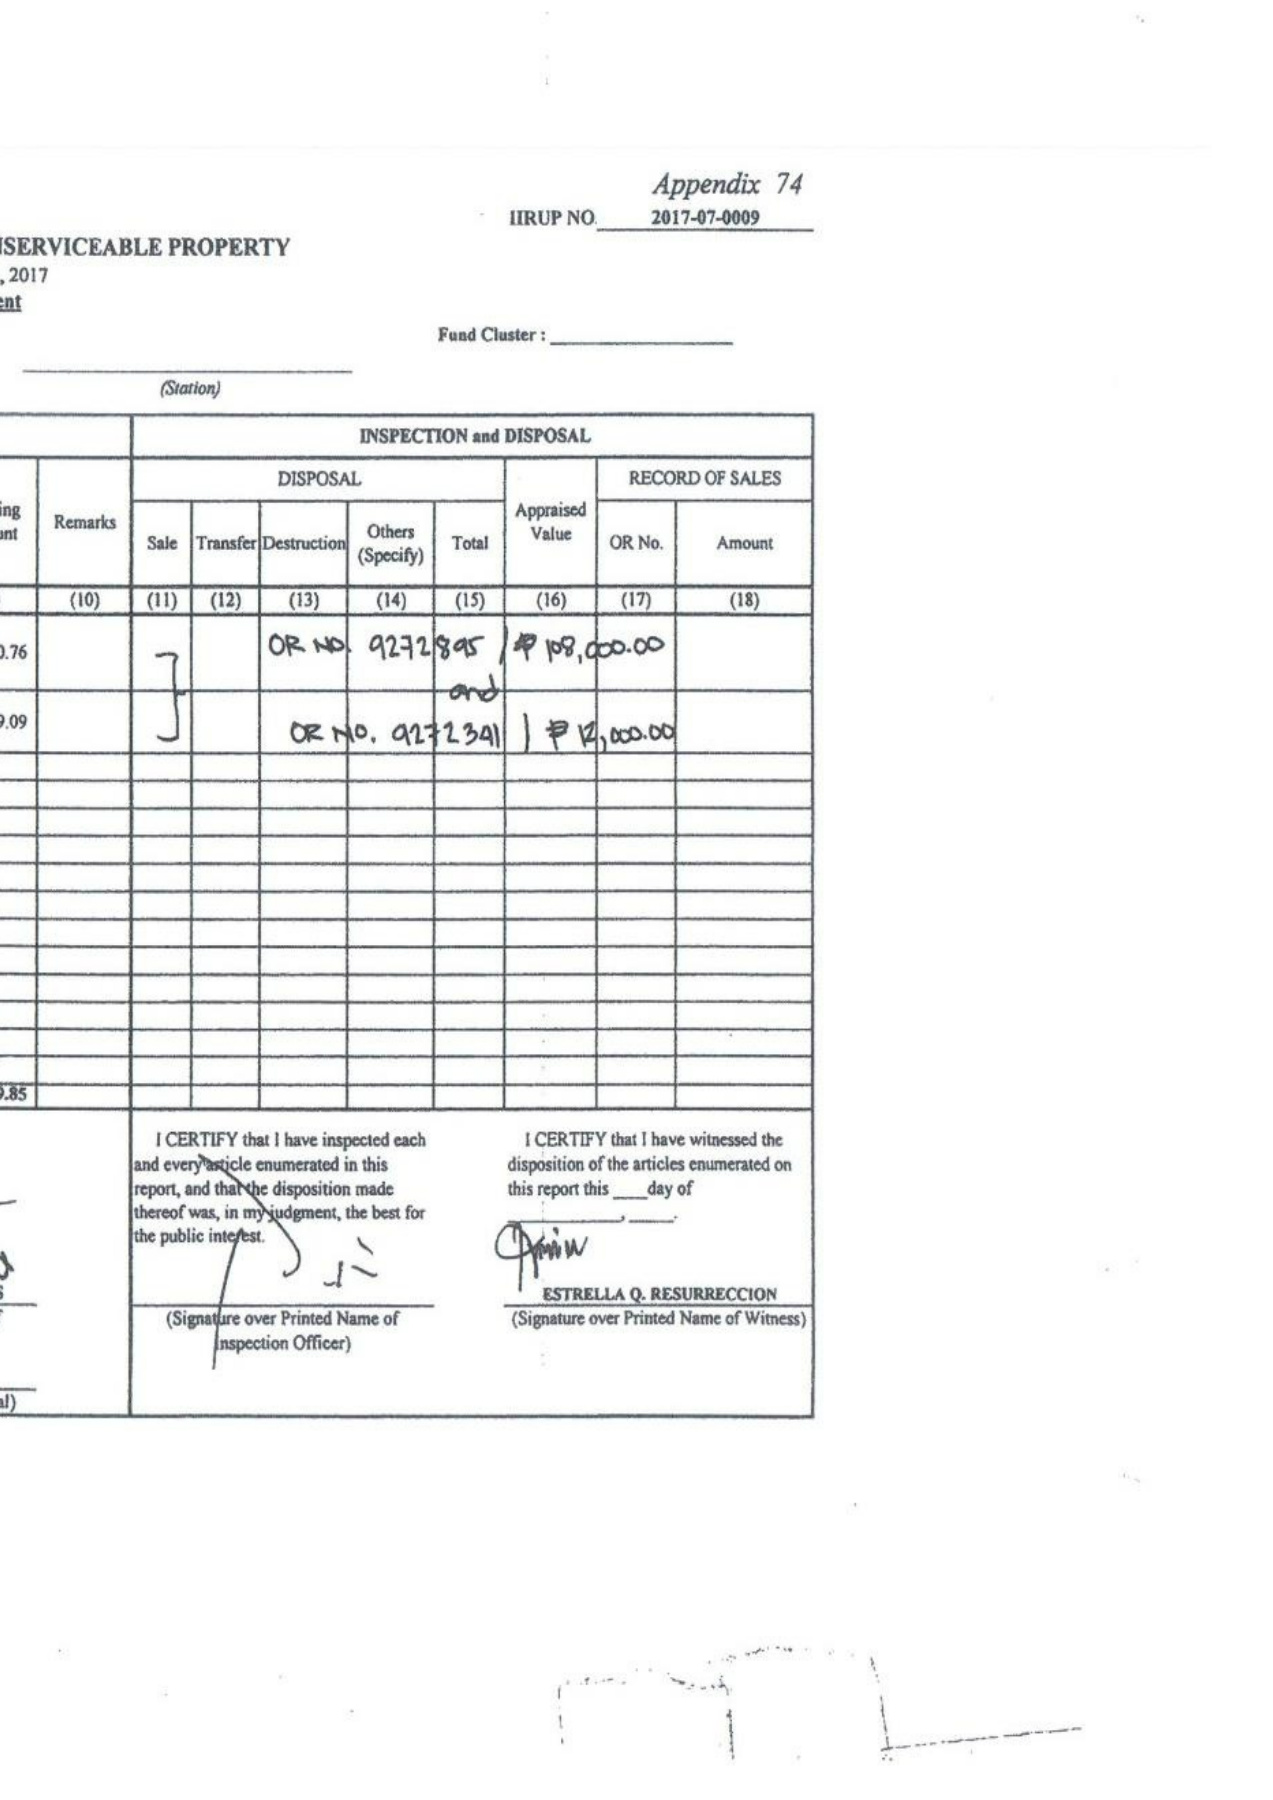 Appendix 74
IIRUP NO. 2017-07-0009
SERVICEABLE PROPERTY
, 2017
ent
Fund Cluster :
(Station)
INSPECTION and DISPOSAL
DISPOSAL
RECORD OF SALES
ing
unt
Remarks
Sale
Transfer
Destruction
Others
(Specify)
Total
Appraised
Value
OR No.
Amount
(10) (11) (12) (13) (14) (15) (16) (17) (18)
0.76
OR NO. 9272895 / ₱ 108,000.00
and
9.09
OR NO. 9272391 / ₱ 12,000.00
9.85
I CERTIFY that I have inspected each
and every article enumerated in this
report, and that the disposition made
thereof was, in my judgment, the best for
the public interest.
(Signature over Printed Name of
Inspection Officer)
I CERTIFY that I have witnessed the
disposition of the articles enumerated on
this report this ____day of
________, ____.
ESTRELLA Q. RESURRECCION
(Signature over Printed Name of Witness)
al)